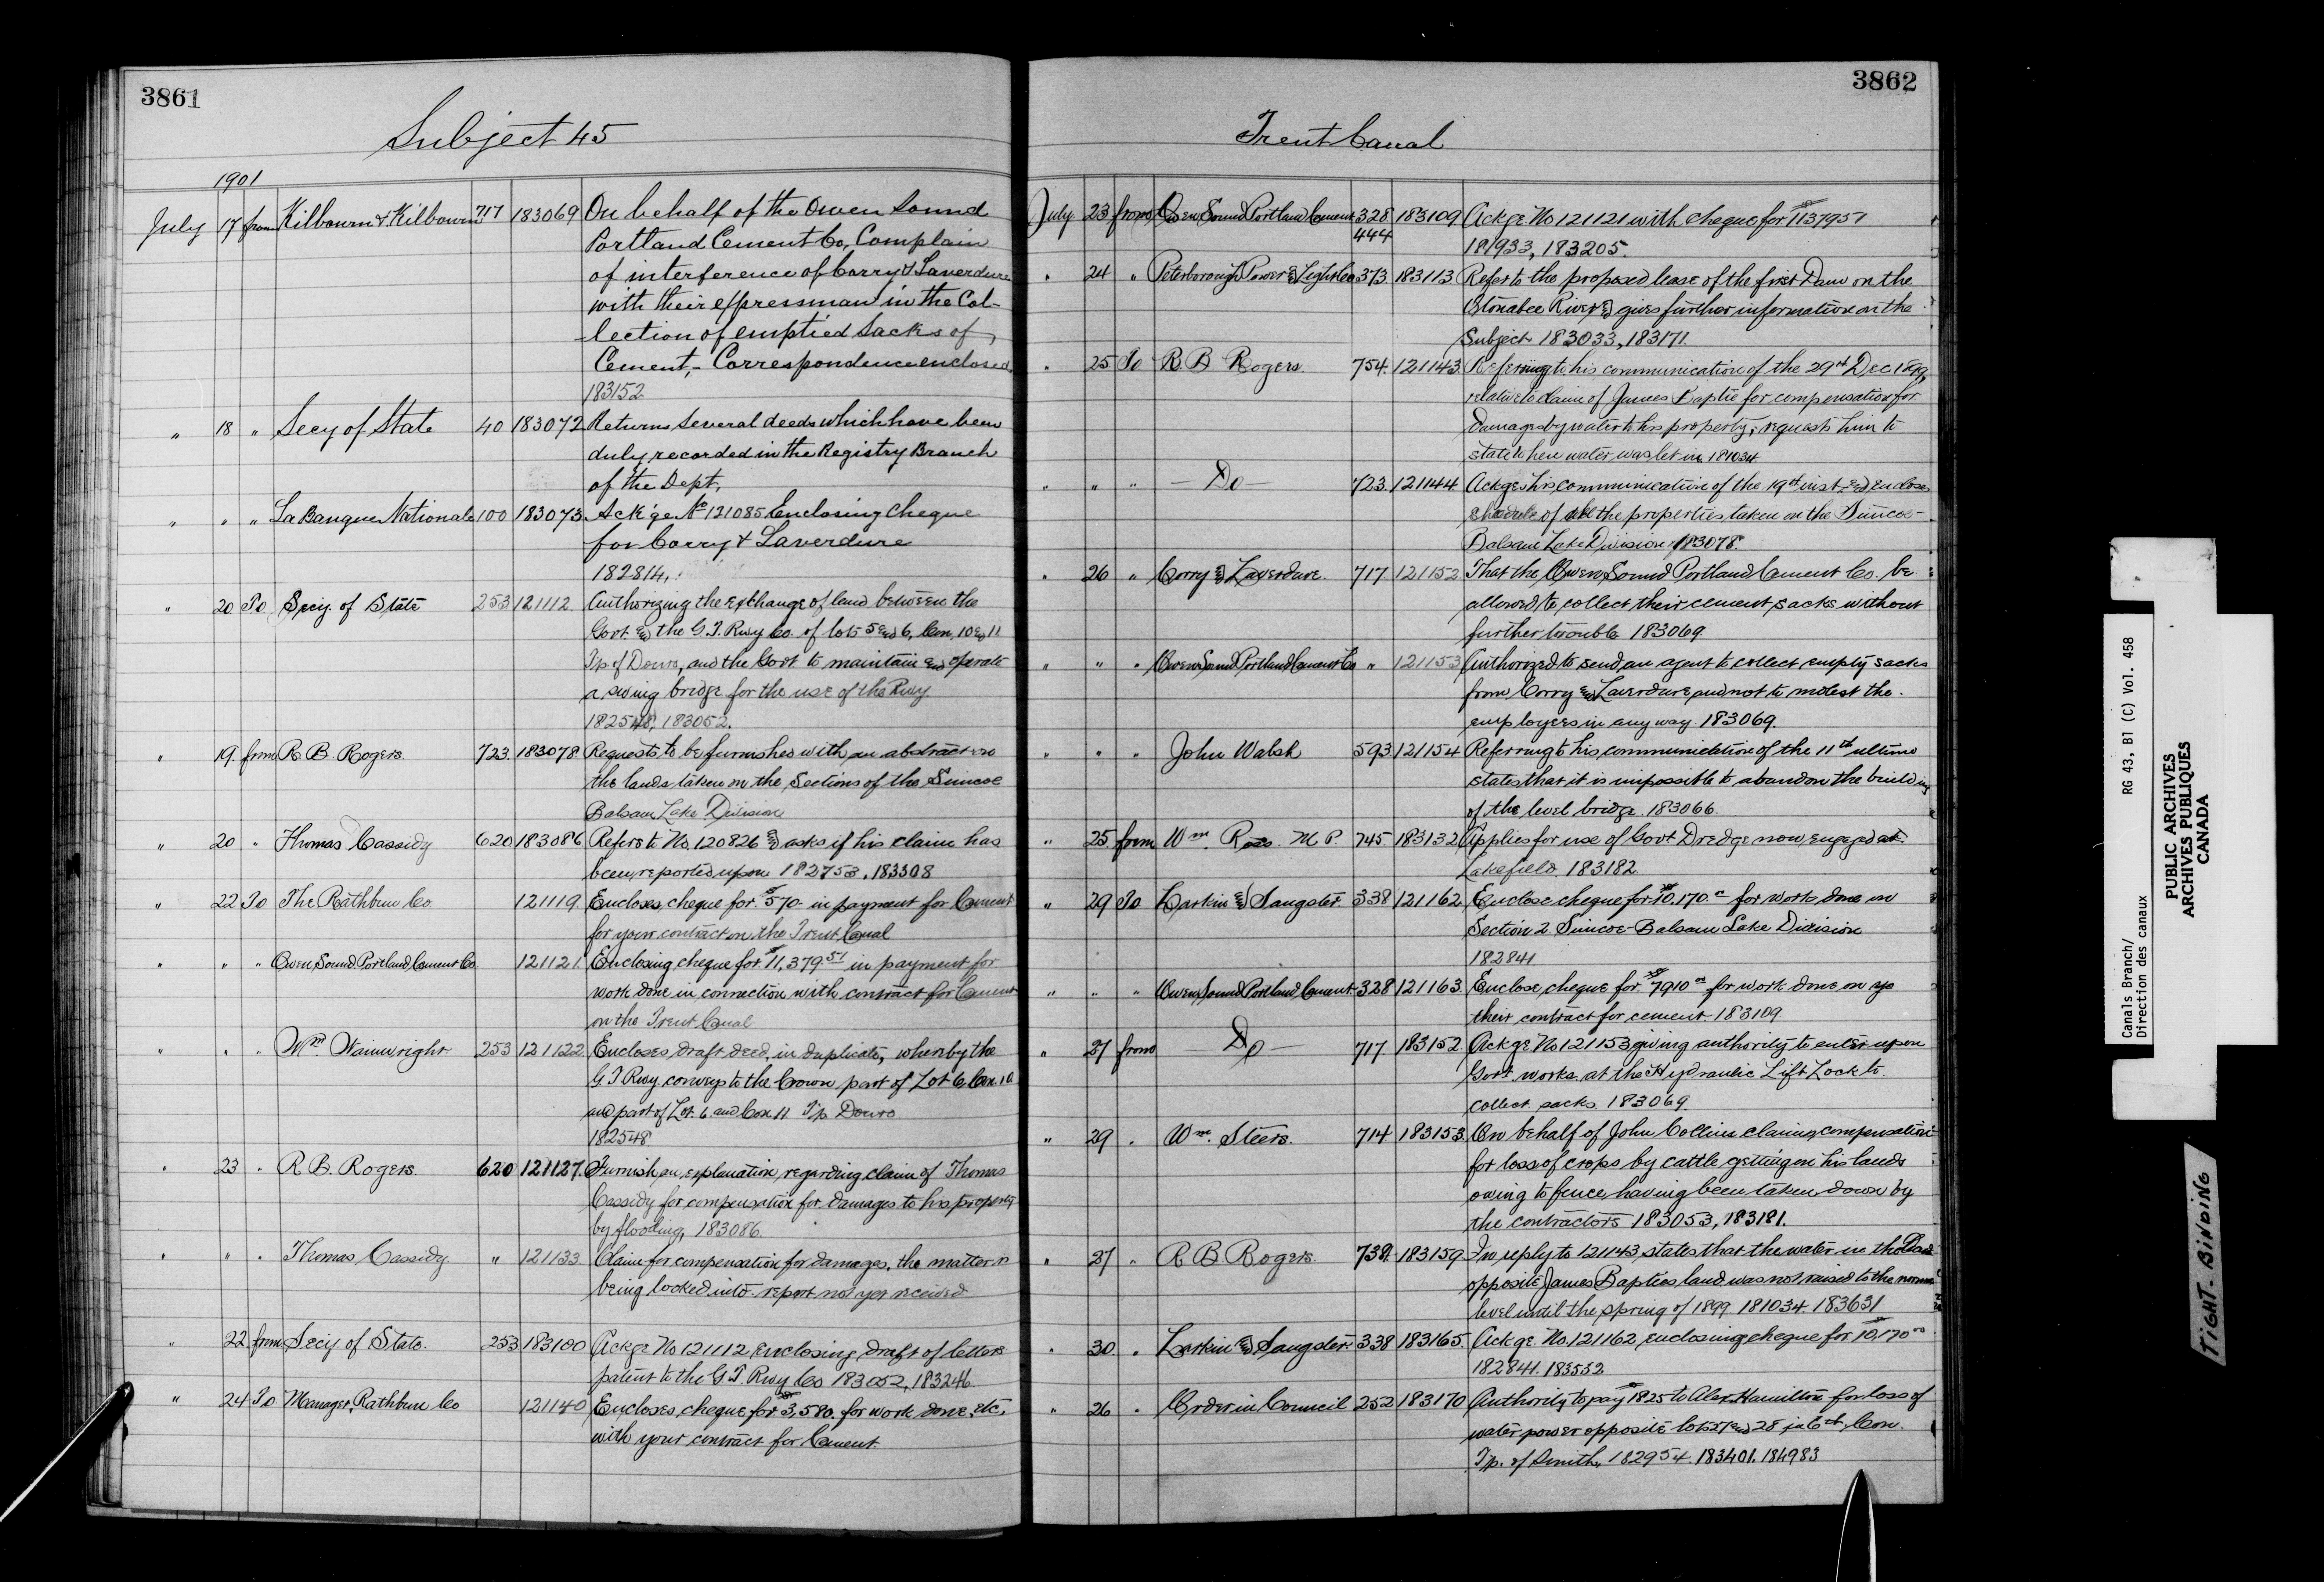 3861
Subject 45
1901
July 17 from Kilbourn & Kilbourn 717 183069 On behalf of the Owen Sound
Portland Cement Co, Complain
of interference of Corry & Laverdure
with their expressman in the Col-
lection of emptied Sacks of
Cement,- Correspondence enclosed.
183152
" 18 " Secy of State 40 183072 Returns Several deeds which have been
duly recorded in the Registry Branch
of the Dept,
" " " La Banque Nationale 100 183073 Ack'ge No 121085 Enclosing Cheque
for Corry & Laverdure
182814,
" 20 To Secy. of State 253 121112 Authorizing the exchange of land between the
Govt. and the G.T. Rwy Co. of lots 5 and 6, Con, 10 and 11
Tp. of Douro, and the Govt to maintain and operate
a swing bridge for the use of the Rwy
182548, 183052.
" 19. from R B. Rogers 723. 183078. Requests to be furnished with an abstract
the lands taken on the Sections of the Simcoe
Balsam Lake Division
" 20 " Thomas Cassidy 620 183086 Refers to No, 120826 and asks if his claim has
been reported upon 182753, 183308
" 22 To The Rathbun Co 121119. Encloses cheque for $570 in payment for Cement
for your contract on the Trent Canal
" " " Owen Sound Portland Cement Co. 121121. Enclosing cheque for $11,379 51 in payment for
work done in connection with contract for Cement
on the Trent Canal
" " " Wm. Wainwright 253 121122 Encloses draft deed, in duplicate, whereby the
G T Rwy. conveys to the Crown part of Lot 6 Con. 10
and part of Lot 6 and Con 11 Tp Douro
182548
" 23 " R B. Rogers. 620 121127. Furnish an explanation regarding claim of Thomas
Cassidy for compensation for damages to his property
by flooding, 183086
" " " Thomas Cassidy " 121133 Claim for compensation for damages, the matter is
being looked into - report not yet received
" 22. from Secy of State. 253 183100 Ackge No 121112, enclosing draft of letters
patent to the G T. Rwy Co 183052, 183246
" 24 To Manager, Rathbun Co 121140 Encloses cheque for $3,580. for work done, etc,
with your contract for Cement
3862
Trent Canal
July 23 from Owen Sound Portland Cement 328 183109 Ackge No 121121 with cheque for $11379 51
444 181933, 183205.
" 24 " Peterborough Power and Light Co 373 183113 Refer to the proposed lease of the first Dam on the
Otonabee River and gives further information on the
Subject 183033, 183171
" 25 To R. B Rogers. 754. 121143. Refering to his communication of the 29th Dec 1899,
relative to claim of James Baptie for compensation for
damages by water to his property, requests him to
state when water was let in. 181034
" " " - Do - 723. 121144. Ackges his communication of the 19th inst and encloses
schedule of all the properties taken on the Simcoe-
Balsam Lake Division, 183078.
" 26 " Corry and Laverdure. 717 121152 That the Owen Sound Portland Cement Co. be
allowed to collect their cement sacks without
further trouble 183069.
" " " Owen Sound Portland Cement Co " 121153 Authorized to send an agent to collect empty sacks
from Corry and Laverdure and not to molest the
employees in any way. 183069.
" " " John Walsh 593 121154 Referring to his communication of the 11th ultimo
states that it is impossible to abandon the building
of the level bridge. 183066.
" 25 from Wm. Ross. M P. 745. 183132 Applies for use of Govt Dredge now engaged at
Lakefield. 183182.
" 29 To Larkin and Sangster. 338 121162. Enclose cheque for $10,170. for work done on
Section 2 Simcoe-Balsam Lake Division
182841
" " " Owen Sound Portland Cement 328 121163. Enclose cheque for $7910 for work done on
their contract for cement. 183109
" 27 from Do - 717. 183152. Ackge No 121153 giving authority to enter upon
Govt. works at the Hydraulic Lift Lock to
collect sacks 183069.
" 29 " Wm. Steers. 714 183153. On behalf of John Collins claims compensation
for loss of crops by cattle getting on his lands
owing to fence having been taken down by
the contractors 183053, 183181.
" 27 " R B Rogers 739. 183159 In reply to 121143, states that the water in the
opposite James Bapties land was not raised to the normal
level until the spring of 1899 181034 183631
" 30. " Larkin and Sangster. 338 183165. Ackge No, 121162, enclosing cheque for $10,170
182841. 183552
" 26 " Order in Council 252 183170 Authority to pay $1825 to Alex. Hamilton for loss of
water power opposite lots 27 and 28 in 6th, Con.
Tp. of Smith, 182954. 183401. 184983
Canals Branch/
Direction des canaux
RG 43, B1 (C) Vol. 458
PUBLIC ARCHIVES
ARCHIVES PUBLIQUES
CANADA
TIGHT. BINDING